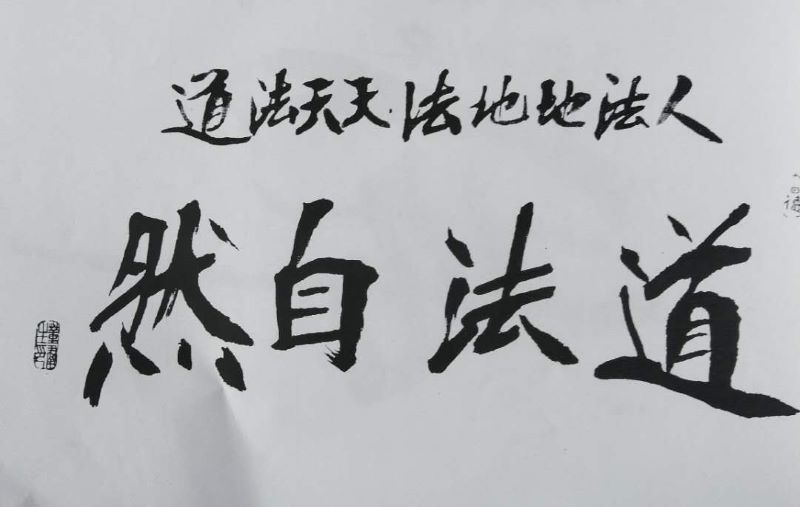 人法地地法天天法道
道法自然